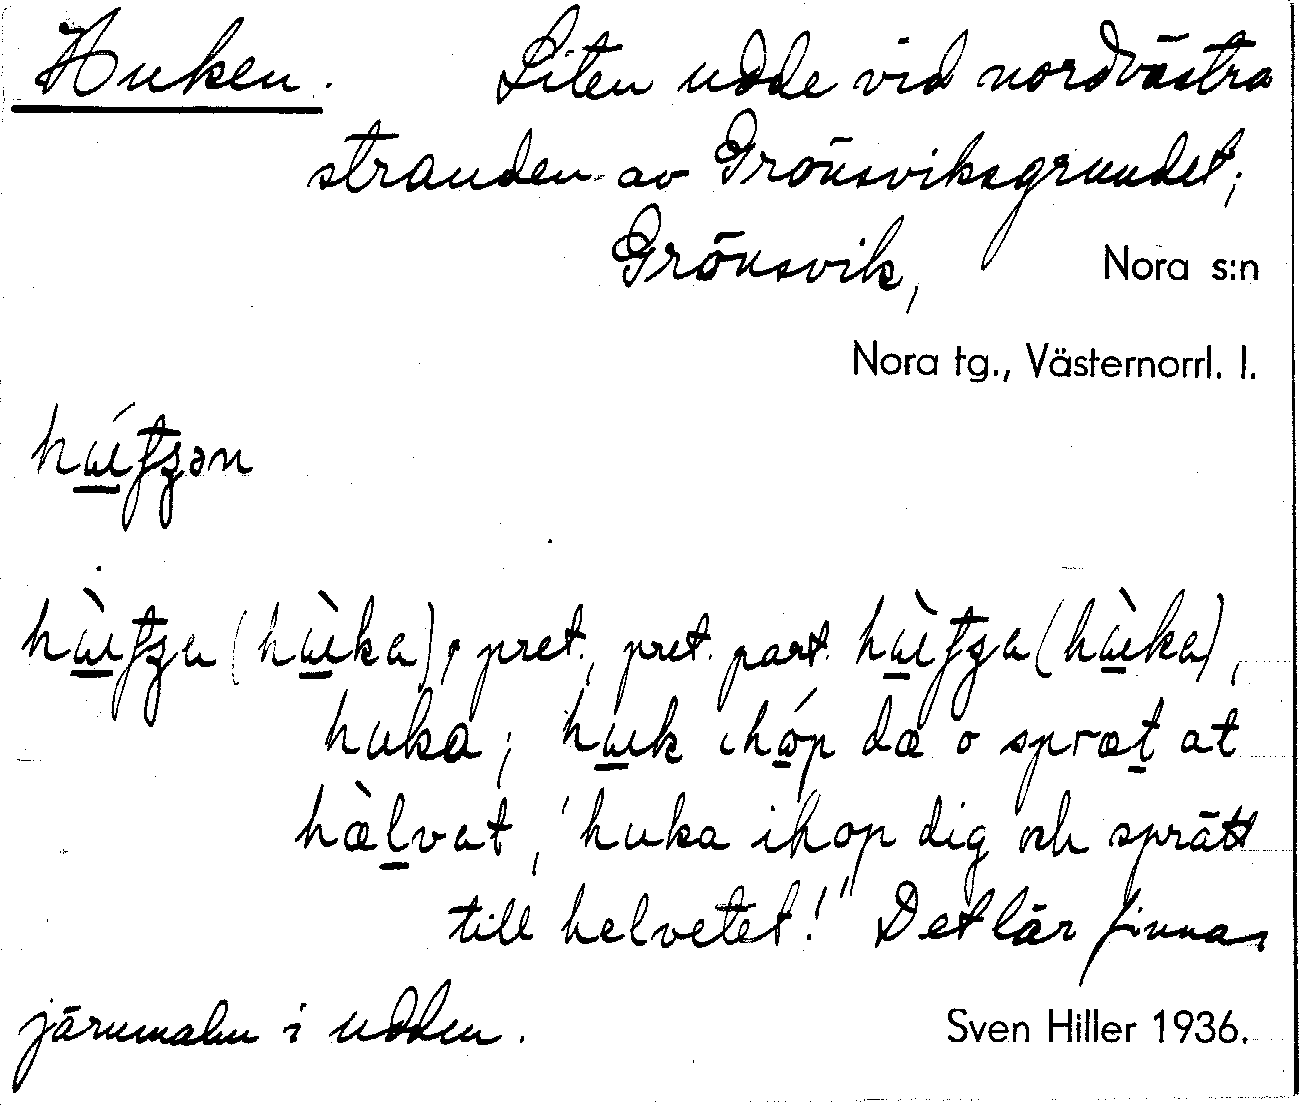 Huken. Liten udde vid nordvästra
stranden av Grönsviksgrundet;
Grönsvik, Nora s:n
Nora tg., Västernorrl. l.
huka; huk ihóp dæ o spræt at
hæ̀lvat, 'huka ihop dig och sprätt
till helvetet!' Det lär finnas
järnmalm i udden. Sven Hiller 1936.